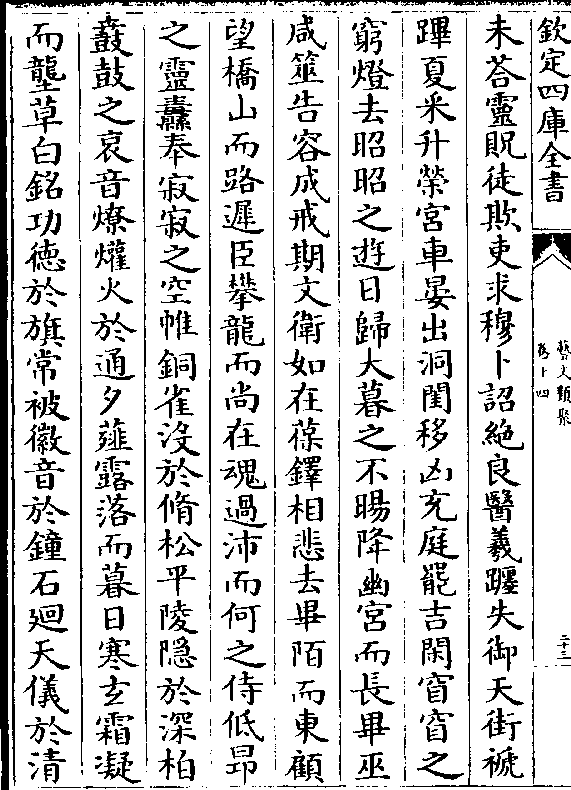 欽定四庫全書
藝文類聚
卷十四
二十三
未荅靈貺徒欺吏求穆卜詔絶良醫羲躔失御天街褫
蹕夏釆升榮宮車晏出洞閨移凶充庭罷吉閑窅窅之
窮燈去昭昭之逰日歸大暮之不暘降幽宮而長畢巫
咸筮告容成戒期文衛如在葆鐸相悲去畢陌而東顧
望橋山而路遲臣攀龍而尚在魂過沛而何之侍低昻
之靈纛奉寂寂之空帷銅雀没於脩松平陵隱於深柏
鼖鼓之哀音燎爟火於通夕薤露落而暮日寒玄霜凝
而壟草白銘功德於旗常被徽音於鐘石廻天儀於清